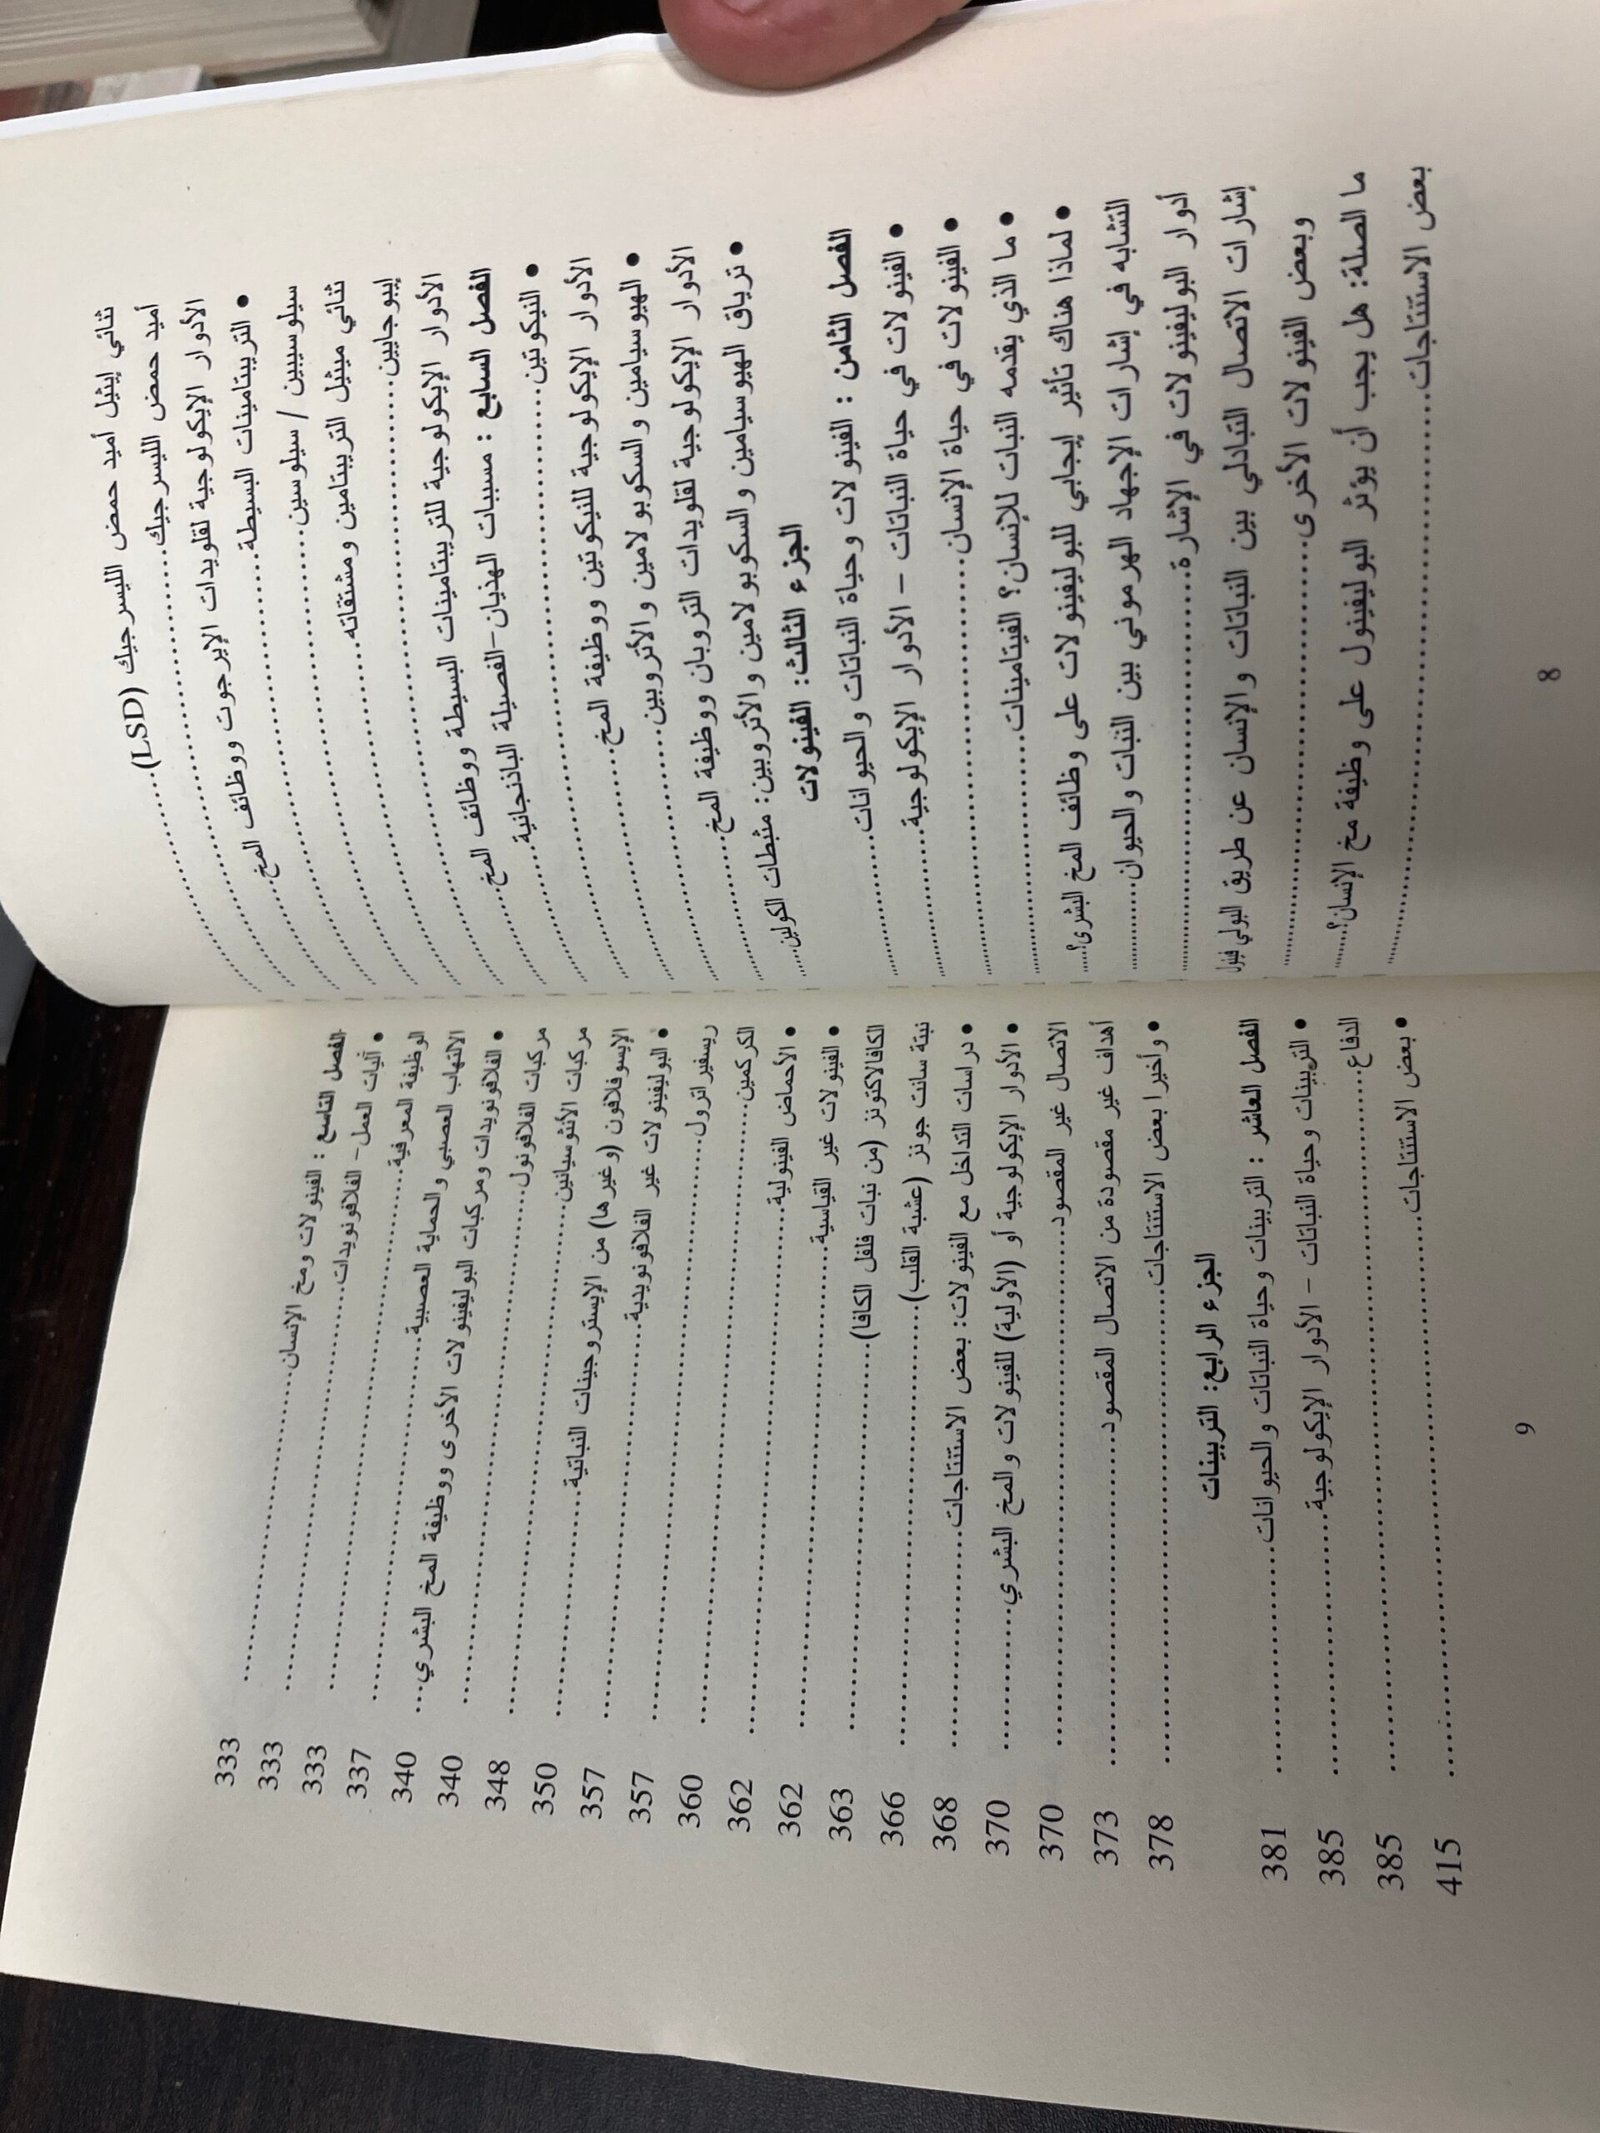 ثنائي إيثيل أميد حمض الليسرجيك (LSD)
أميد حمض الليسرجيك
الأدوار الإيكولوجية لقلويدات الإيرجوت ووظائف المخ
● التريبتامينات البسيطة
سيلوسيبين / سيلوسين
ثنائي ميثيل التريبتامين ومشتقاته
إيبوجايين
الأدوار الإيكولوجية للتريبتامينات البسيطة ووظائف المخ
الفصل السابع : مسببات الهذيان-الفصيلة الباذنجانية
● النيكوتين
الأدوار الإيكولوجية للنيكوتين ووظيفة المخ
● الهيوسيامين والسكوبولامين والأتروبين
الأدوار الإيكولوجية لقلويدات التروبان ووظيفة المخ
● ترياق الهيوسيامين والسكوبولامين والأتروبين: مثبطات الكولين
الجزء الثالث: الفينولات
الفصل الثامن : الفينولات وحياة النباتات والحيوانات
● الفينولات في حياة النباتات – الأدوار الإيكولوجية
● الفينولات في حياة الإنسان
● ما الذي يقدمه النبات للإنسان؟ الفيتامينات
● لماذا هناك تأثير إيجابي للبوليفينولات على وظائف المخ البشرى؟
التشابه في إشارات الإجهاد الهرموني بين النبات والحيوان
أدوار البوليفينولات في الإشارة
إشارات الاتصال التبادلي بين النباتات والإنسان عن طريق البولي فينول
وبعض الفينولات الأخرى
ما الصلة: هل يجب أن يؤثر البوليفينول على وظيفة مخ الإنسان؟
بعض الاستنتاجات
8
الفصل التاسع : الفينولات ومخ الإنسان 333
● آليات العمل- الفلافونويدات 333
الوظيفة المعرفية 333
الالتهاب العصبي والحماية العصبية 337
● الفلافونويدات ومركبات البوليفينولات الأخرى ووظيفة المخ البشري 340
مركبات الفلافونول 340
مركبات الأنثوسيانين 348
الإيسوفلافون (وغيرها) من الإيستروجينات النباتية 350
● البوليفينولات غير الفلافونويدية 357
ريسفيراترول 357
الكركمين 360
● الأحماض الفينولية 362
● الفينولات غير القياسية 362
الكافالاكتونز (من نبات فلفل الكافا) 363
نبتة سانت جونز (عشبة القلب) 366
● دراسات التداخل مع الفينولات: بعض الاستنتاجات 368
● الأدوار الإيكولوجية أو (الأولية) للفينولات والمخ البشري 370
الاتصال غير المقصود 370
أهداف غير مقصودة من الاتصال المقصود 373
● وأخيرا بعض الاستنتاجات 378
الجزء الرابع: التربينات
الفصل العاشر : التربينات وحياة النباتات والحيوانات 381
● التربينات وحياة النباتات – الأدوار الإيكولوجية 385
الدفاع 385
● بعض الاستنتاجات 415
9